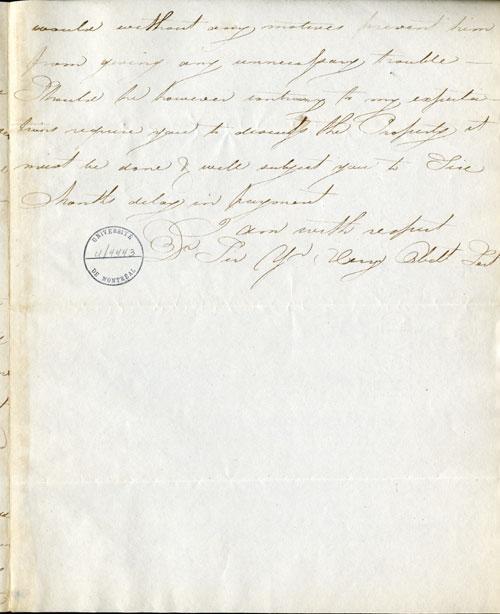 would without any motives prevent him
from giving any unnecessary trouble —
Should he however contrary to my expecta
tions require you to the Property it
must be done & will subject you to Six
Months delay in payment
I am with respect
Dr Sir Yr Very Obdt Sert
UNIVERSITÉ
U/4443
DE MONTRÉAL